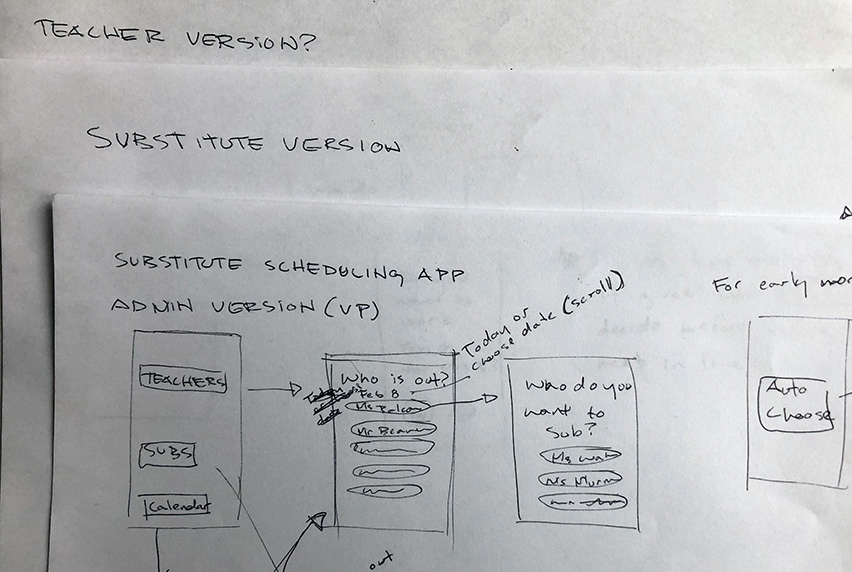 TEACHER VERSION?
SUBSTITUTE VERSION
SUBSTITUTE SCHEDULING APP
ADMIN VERSION (VP)
For early mor
Today or
choose date (scroll)
TEACHERS
SUBS
Calendar
Who is out?
Feb 8
Ms Falcon
Mr Beaver
Who do you
want to
Sub?
Ms
Ms Murra
Auto
Choose
out